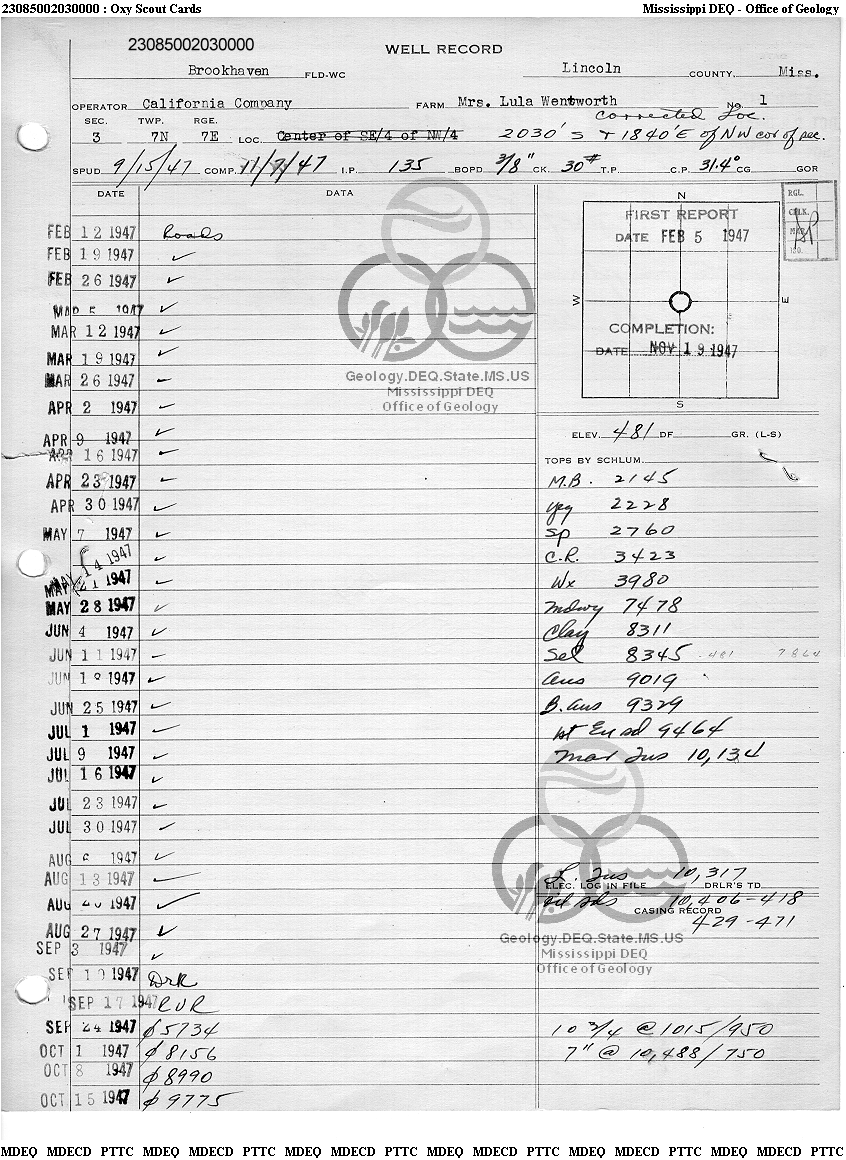 23085002030000 : Oxy Scout Cards Mississippi DEQ - Office of Geology
23085002030000
WELL RECORD
Brookhaven FLD-WC Lincoln COUNTY, Miss.
OPERATOR California Company FARM Mrs. Lula Wentworth No. 1
SEC. TWP. RGE. corrected Loc.
3 7N 7E LOC. Center of SE/4 of NW/4 2030' S + 1840' E of NW cor of sec.
SPUD 9/15/47 COMP. 11/7/47 I.P. 135 BOPD 3/8" CK. 30# T.P. C.P. 31.4° CG GOR
DATE DATA
N
FIRST REPORT
DATE FEB 5 1947
RGL.
W E
COMPLETION:
DATE NOV 19 1947
S
FEB 12 1947 Roads
FEB 19 1947 ✓
FEB 26 1947 ✓
MAR 5 1947 ✓
MAR 12 1947 ✓
MAR 19 1947 ✓
MAR 26 1947 ✓
APR 2 1947 ✓
APR 9 1947 ✓
APR 16 1947 ✓
APR 23 1947 ✓
APR 30 1947 ✓
MAY 7 1947 ✓
MAY 14 1947 ✓
MAY 21 1947 ✓
MAY 28 1947 ✓
JUN 4 1947 ✓
JUN 11 1947 ✓
JUN 18 1947 ✓
JUN 25 1947 ✓
JUL 1 1947 ✓
JUL 9 1947 ✓
JUL 16 1947 ✓
JUL 23 1947 ✓
JUL 30 1947 ✓
AUG 6 1947 ✓
AUG 13 1947 ✓
AUG 20 1947 ✓
AUG 27 1947 ✓
SEP 3 1947 ✓
SEP 10 1947 Drk
SEP 17 1947 RUR
SEP 24 1947 ϕ 5734
OCT 1 1947 ϕ 8156
OCT 8 1947 ϕ 8990
OCT 15 1947 ϕ 9775
Geology.DEQ.State.MS.US
Mississippi DEQ
Office of Geology
ELEV. 481 DF GR. (L-S)
TOPS BY SCHLUM.
M.B. 2145
Ypg 2228
Sp 2760
C.R. 3423
Wx 3980
Mdwy 7478
Clay 8311
Sel 8345 481 7864
Aus 9019
B. Aus 9329
1st Eu sd 9464
Mar Tus 10,134
L. Tus 10,317
ELEC. LOG IN FILE DRLR'S TD
sds 10,406-418
CASING RECORD
429-471
Geology.DEQ.State.MS.US
Mississippi DEQ
Office of Geology
10 3/4 @ 1015/950
7" @ 10,488/750
MDEQ MDECD PTTC MDEQ MDECD PTTC MDEQ MDECD PTTC MDEQ MDECD PTTC MDEQ MDECD PTTC MDEQ MDECD PTTC